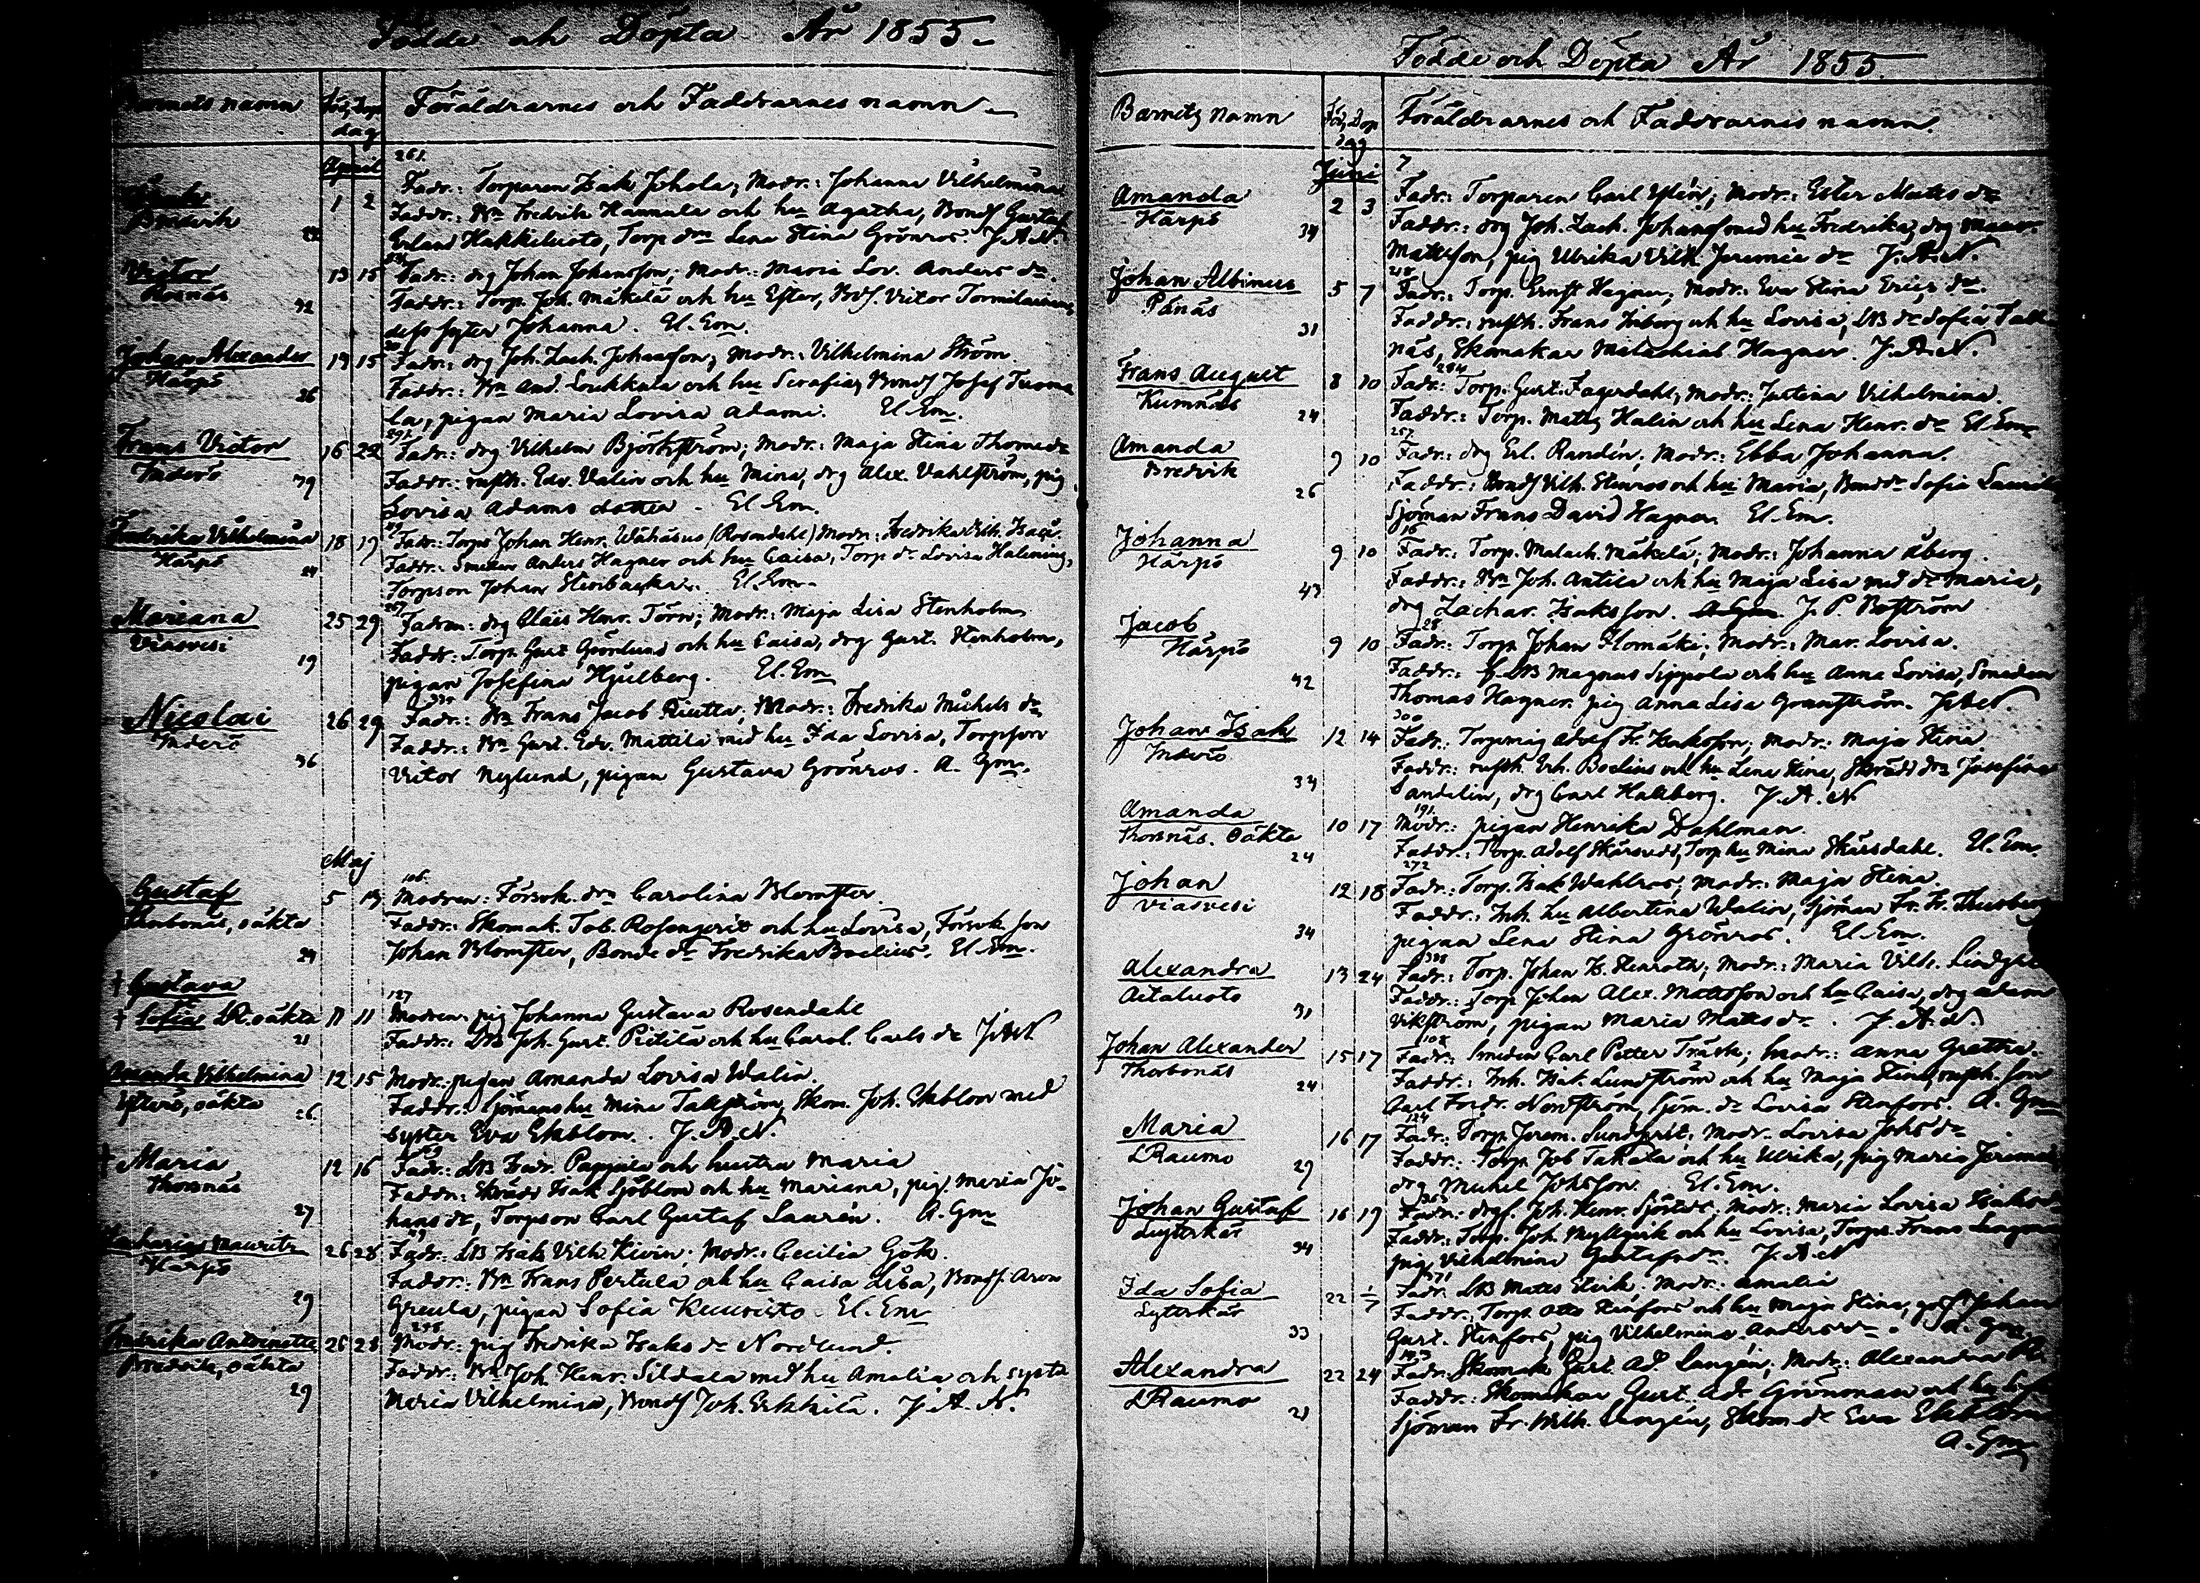 Födde och Döpta År 1855
Barnets namn Föd. Dop dag Föräldrarnes och Faddrarnes namn
April
261.
1 2 Fadr.: Torparen Isak Johola; Modr.: Johanna Vilhelmina
Bredvik Faddr.: Bn Fredrik Hannula och hu Agatha, Bonds. Gustaf
Erland Hakkiluoto, Torp. drn Lena Stina Grönros. J.A.N.
Victor 13 15 Fadr.: drg Johan Johansson; Modr.: Maria Lov. Anders dr
Rosnäs 32 Faddr.: Torp. Joh. Mäkelä och hu Ester, Bds. Victor
dess syster Johanna. El. Em.
Johan Alexander 14 15 Fadr.: drg Joh. Zach. Johansson; Modr.: Vilhelmina Ström
Härpö Faddr.: Bn And. Loukkula och hu Serafia, Bonds Josef Tuoma
26 la, pigan Maria Lovisa Adams. El. Em.
291
Frans Victor 16 22 Fadr.: drg Vilhelm Björkström; Modr.: Maja Stina Thomæ dr
Inderö 39 Faddr.: rusth. Edv. Valin och hu Mina, drg Alex. Vahlström, pig.
Lovisa Adams dotter. El. Em.
Fredrika Vilhelmina 18 19 Fadr.: Torp. Johan Henr. Wähäsus (Rosendahl) Modr.: Fredrika Vilh. Isacs.
Härpö 24 Faddr.: Smeden Anders Hagner och hu Caisa, Torp. dr Lovisa
Torpson Johan Stenbacka. El. Em.
Mariana 25 29 Fadren: drg Claës Henr. Törn; Modr.: Maja Lisa Stenholm
Viasvesi Faddr.: Torp. Gust. Grönlund och hu Caisa, drg Gust. Stenholm,
19 pigan Josefina Hjulberg. El. Em
Nicolai 26 29 Fadr.: Bn Frans Jacob Riutta; Modr.: Fredrika Michels dr
Inderö Faddr.: Bn Gust. Edv. Mattila med hu Ida Lovisa, Torpson
36 Victor Nylund, pigan Gustava Grönros. A. Gm.
Maj
106.
Gustaf 5 13 Modren: Försvk. drn Carolina Blomster.
Thorbonäs, oäkta Faddr.: Skomak. Tob. Rosengerit och hu Lovisa, Försvk. son
24 Johan Blomster, Bonde dr Fredrika Boelius. El. Em.
† Gustava
127
† Sofia LR. oäkta 11 11 Modren: pig Johanna Gustava Rosendahl
21 Faddr.: LB Joh. Gust. Pietilä och hu Carol. Carls dr J.A.N.
Amanda Vilhelmina 12 15 Modr.: pigan Amanda Lovisa Walin
Ytterö, oäkta 26 Faddr.: Sjömans hu Mina Tallström, Skom. Joh. Ekblom med
syster Eva Ekblom. J.A.N.
† Maria 12 16 Fadr.: LB Fredr. Pappila och hustru Maria
Thorsnäs Faddr.: Skrädd. Isak Sjöblom och hu Mariana, pig. Maria Jo-
27 hans dr, Torpson Carl Gustaf Laurén. A. Gm
Zacharias Mauritz 26 28 Fadr.: LB Isak Vilh. Kivin; Modr.: Cecilia Gök.
Härpö Faddr.: Bn Frans Pertula och hu Caisa Lisa, Bonds. Aron
29 Greula, pigan Sofia Kuuristo. El. Em
Fredrika Antoinette 26 28 Modr.: pig Fredrika Isaks dr Nordlund.
Bredvik, oäkta Faddr.: Bn Joh. Henr. Sildala med hu Amalia och syster
29 Maria Vilhelmina, Bonds Joh. Erkkilä. J.A.N.
Födde och Döpta År 1855.
Barnets namn Föd. Dop dag Föräldrarnes och Faddrarnes namn.
Juni
7
Amanda 2 3 Fadr.: Torparen Carl Ystén; Modr.: Ester Matts dr
Härpö Faddr.: drg Joh. Zach. Johansson med hu Fredrika; drg
34 Mattsson, pig Ulrika Vilh. Jeremiæ dr J.A.N.
218
Johan Albinus 5 7 Fadr.: Torp. Ernst Hagner; Modr.: Eva Stina Erics dr
Pänäs Faddr.: rusth. Frans Inberg och hu Lovisa, LB dr Sofia Tall
31 näs, Skomakar Malachias Hagner. J.A.N.
284
Frans August 8 10 Fadr.: Torp. Gust. Fagerdahl; Modr.: Justina Vilhelmina.
Kumnäs 24 Faddr.: Torp. Matts Halin och hu Lena Henr. dr El. Em
257
Amanda 9 10 Fadr.: drg Erl. Randén; Modr.: Ebba Johanna.
Bredvik Faddr.: Bonds Vilh. Stenros och hu Maria, Bonde dr Sofia Laurila
26 Sjöman Frans David Hagner. El. Em.
16
Johanna 9 10 Fadr.: Torp. Malach. Mäkelä; Modr.: Johanna Åberg.
Härpö Faddr.: Bn Joh. Antila och hu Maja Lisa med dr Maria,
43 drg Zachar. Isaksson. J. P. Boström
28
Jacob 9 10 Fadr.: Torp. Johan Ylomäki; Modr.: Mar. Lovisa.
Härpö Faddr.: f. LB Magnus Sippola och hu Anna Lovisa, Smeden
42 Thomas Hagner, pig Anna Lisa Grannström. J.A.N.
300
Johan Isak 12 14 Fadr.: Torpmåg Adolf Fr. Isaksson; Modr.: Maja Stina
Inderö Faddr.: rusth. Erh. Boelius och hu Lena Stina, Skrädd drn Josefina
34 Sandelin, drg Carl Hallberg. J.A.N
191
Amanda 10 17 Modr.: pigan Henrika Dahlman.
Thorsnäs. oäkta Faddr.: Torp. Adolf, Torp. hu Mina Skärsdahl. El. Em.
24
272
Johan 12 18 Fadr.: Torp. Isak Wahlros; Modr.: Maja Stina
Viasvesi Faddr.: Inh. hu Albertina Walin, Sjöman Fr. Fr. Thusberg
34 pigan Lena Stina Grönros. El. Em.
338
Alexandra 13 24 Fadr.: Torp. Johan H. Stenroth; Modr.: Maria Vilh.
Aitaluoto Faddr.: Torp. Johan Alex. Mattsson och hu Caisa, drg Adam
31 Vikström, pigan Maria Matts dr. J.A.N.
108
Johan Alexander 15 17 Fadr.: Smeden Carl Petter Träsk; Modr.: Anna Gretha.
Thorbonäs Faddr.: Inh. Isak Lundström och hu Maja Stina, rusth. son
24 Carl Fredr. Nordström, Sjöm. dr Lovisa Stenfors. A. Gm
124
Maria 16 17 Fadr.: Torp. Jerem. Sundqvist; Modr. Lovisa Johs dr
LRaumo Faddr.: Torp. Job Takala och hu Ulrika, pig Maria Jeremiæ
29 drg Michel Johsson. El. Em.
Johan Gustaf 16 19 Fadr.: drg. Joh. Henr.; Modr.: Maria Lovisa Isaks dr
Lyttskär Faddr.: Torp. Joh. Myllyruk och hu Lovisa, Torps. Frans
34 pig Vilhelmina Gustafs dr. J.A.N
Ida Sofia 22 1/7 Fadr. LB Mats; Modr.: Amalia
Lyttskär Faddr.: Torp. Otto Stenfors och hu Maja Stina, Johan
33 Gust. Stenfors, pig Vilhelmina Anders dr. A. Gm
Alexandra 22 24 Fadr.: Skomak. Gust. Ad. Langén; Modr.: Alexandra
LRaumo Faddr.: Skomakar Gust. Ad. Grönman och hu
21 Sjöman Fr. Wilh. Langén, Skom. dr Eva Ekblom
A. Gm